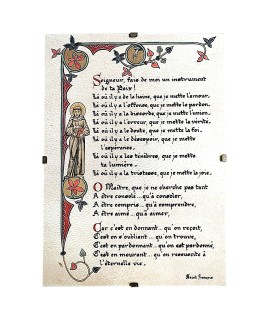 Seigneur, fais de moi un instrument
de ta Paix !
Là où il y a de la haine, que je mette l'amour.
Là où il y a l'offense, que je mette le pardon.
Là où il y a la discorde, que je mette l'union.
Là où il y a l'erreur, que je mette la vérité.
Là où il y a le doute, que je mette la foi.
Là où il y a le désespoir, que je mette
l'espérance.
Là où il y a les ténèbres, que je mette
ta lumière.
Là où il y a la tristesse, que je mette la joie.
O Maître, que je ne cherche pas tant
A être consolé... qu'à consoler,
A être compris... qu'à comprendre,
A être aimé... qu'à aimer,
Car c'est en donnant... qu'on reçoit,
C'est en s'oubliant... qu'on trouve,
C'est en pardonnant... qu'on est pardonné,
C'est en mourant... qu'on ressuscite à
l'éternelle vie.
Saint François